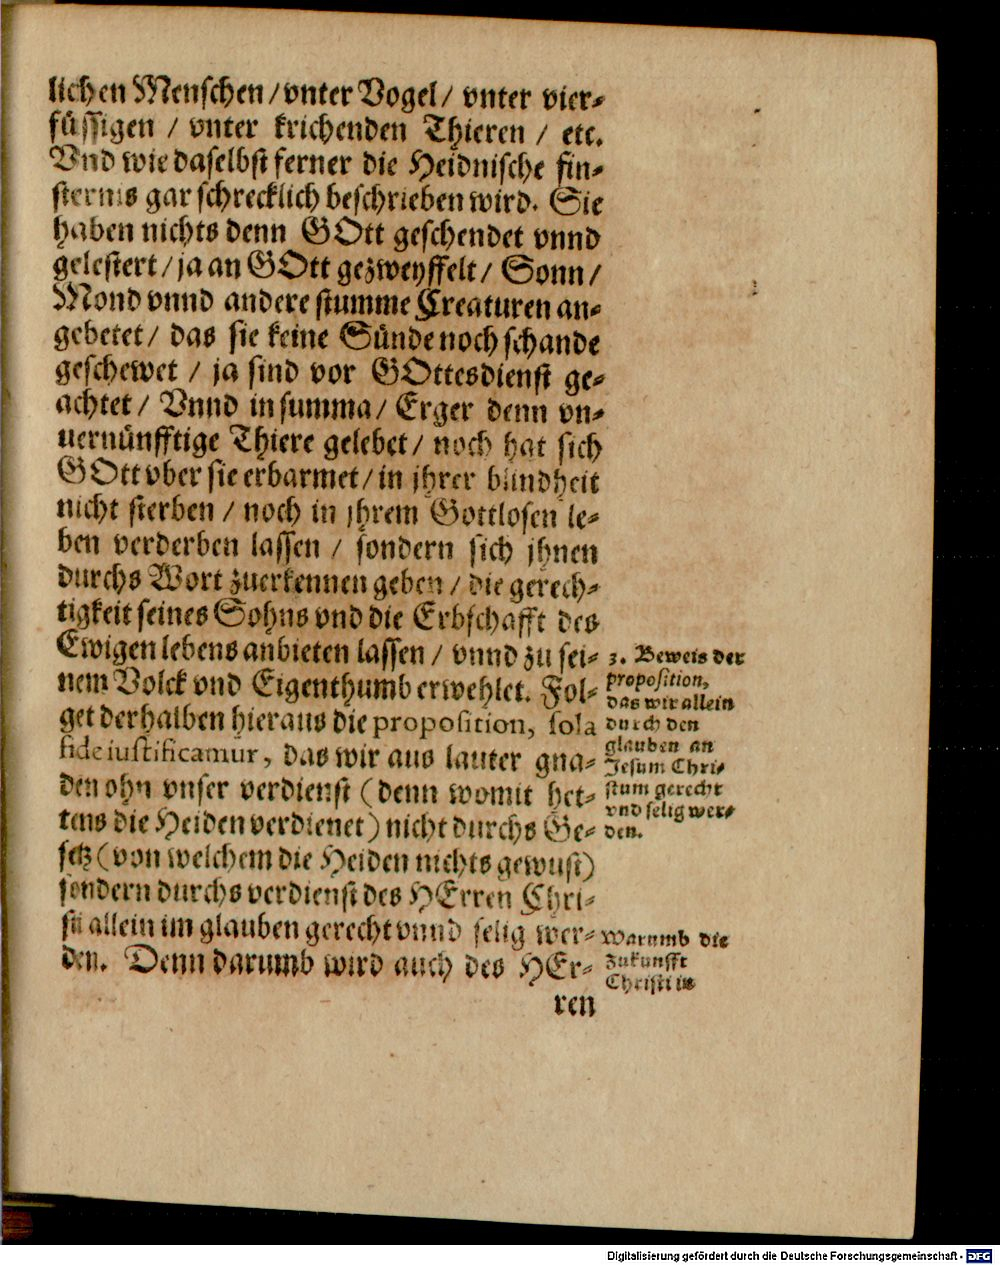 lichen Menschen / vnter Vogel / vnter vier-
füssigen / vnter krichenden Thieren / etc.
Vnd wie daselbst ferner die Heidnische fin-
sternis gar schrecklich beschrieben wird. Sie
haben nichts denn GOtt geschendet vnnd
gelestert / ja an GOtt gezweyffelt / Sonn /
Mond vnnd andere stumme Creaturen an-
gebetet / das sie keine Sünde noch schande
geschewet / ja sind vor GOttesdienst ge-
achtet / Vnnd in summa / Erger denn vn-
uernünfftige Thiere gelebet / noch hat sich
GOtt vber sie erbarmet / in jhrer blindheit
nicht sterben / noch in jhrem Gottlosen le-
ben verderben lassen / sondern sich jhnen
durchs Wort zuerkennen geben / die gerech-
tigkeit seines Sohns vnd die Erbschafft des
Ewigen lebens anbieten lassen / vnnd zu sei-
nem Volck vnd Eigenthumb erwehlet. Fol-
get derhalben hieraus die proposition, sola
fide iustificamur, das wir aus lauter gna-
den ohn vnser verdienst (denn womit het-
tens die Heiden verdienet) nicht durchs Ge-
setz (von welchem die Heiden nichts gewust)
sondern durchs verdienst des HErren Chri-
sti allein im glauben gerecht vnnd selig wer-
den. Denn darumb wird auch des HEr-
ren
3. Beweis der
proposition,
das wir allein
durch den
glauben an
Jesum Chri-
stum gerecht
vnd selig wer-
den.
Warumb die
zukunfft
Christi in
Digitalisierung gefördert durch die Deutsche Forschungsgemeinschaft - DFG